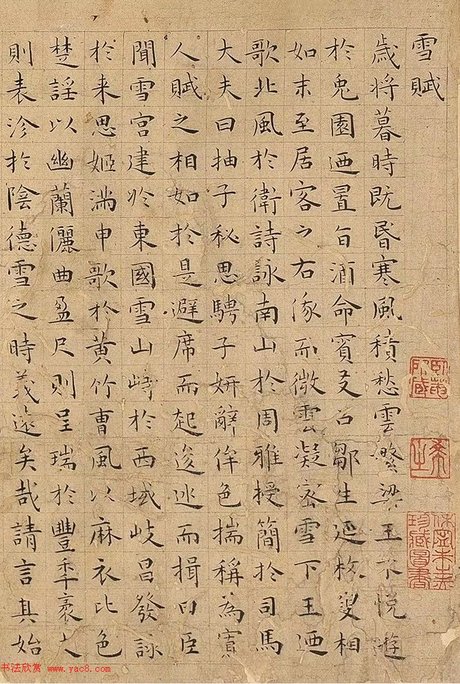 雪賦
歲將暮時既昏寒風積愁雲繁梁王不悅遊
於兔園迺置旨酒命賓友召鄒生延枚叟相
如末至居客之右俄而微雲凝密雪下王迺
歌北風於衛詩詠南山於周雅授簡於司馬
大夫曰抽子秘思騁子妍辭侔色揣稱為賓
人賦之相如於是避席而起逡巡而揖曰臣
聞雪宮建於東國雪山峙於西域岐昌發詠
於來思姬滿申歌於黃竹曹風以麻衣比色
楚謠以幽蘭儷曲盈尺則呈瑞於豐年袤丈
則表沴於陰德雪之時義遠矣哉請言其始
书法欣赏 www.yac8.com